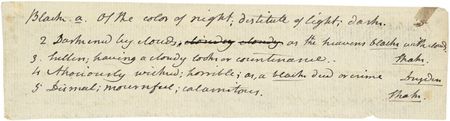 Black. a. Of the color of night; destitute of light; dark.
2 Darkened by clouds, cloudy cloudy as the heavens black with clouds. Shak.
3. Sullen; having a cloudy look or countenance. Shak.
4 Atrociously wicked; horrible; as, a black deed or crime Dryden
5 Dismal; mournful; calamitous. Shak.